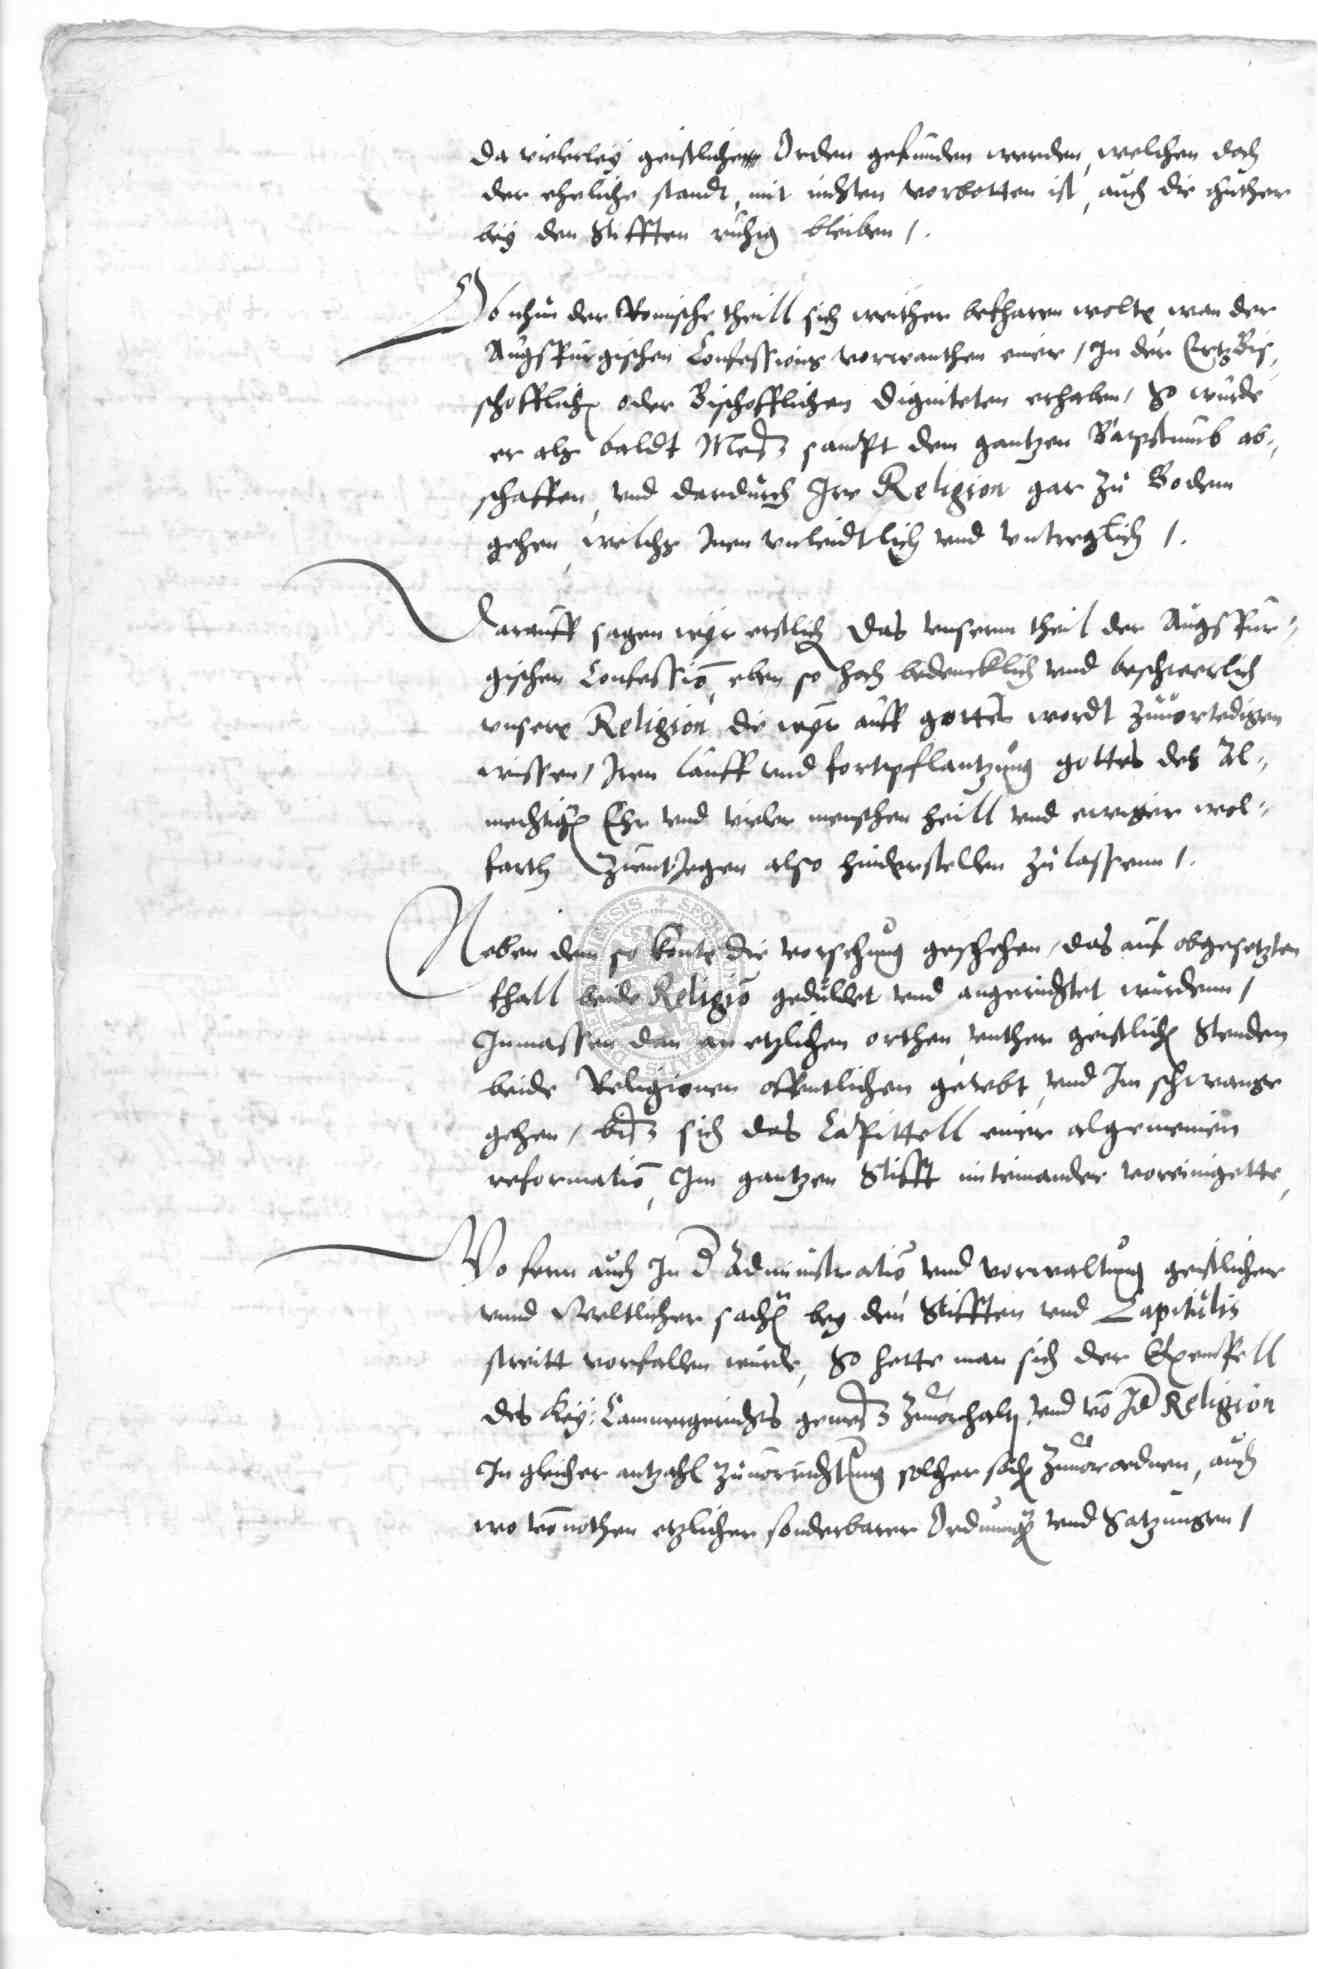 da vielerley geistlicher Orden gefunden werden, welchen doch
der eheliche standt, mit nichten vorbotten ist, auch die guther
bey den Stifften ruhig bleiben /.
Ob nhun der Romische theill sich weither befharen wolte, wan der
Augspurgischen Confessions vorwanthen einer / In der Ertzbis-
schofflichen oder Bischofflichen digniteten erhaben / So wurde
er als baldt Mess sampt dem gantzen Bapstumb ab-
schaffen, vnd dardurch Ire Religion gar zu Bodem
gehen, welchs Inen vnleidtlich vnd vntreglich /.
Darauff sagen wyr erstlich das vnserm theil der Augspur-
gischen Confession, eben so hoch bedencklich vnd beschwerlich
vnsere Religion, die wyr auff gottes wordt zuuortedigen
wissen / Iren lauff vnd fortpflantzung gottes des Al-
mechtigen Ehr vnd vieler menschen heill vnd ewiger wol-
farth zuentjegen also hinderstellen zu lassenn /.
Neben dem so konte die vorsehung geschehen / das auf obgesetzten
fhall beide Religion geduldet vnd angerichtet wurdenn /
Inmassen dan an etzlichen orthen, vnther geistlichen Stenden
beide Religionen offentlichen geuebt, vnd Im schwange
gehen / biss sich das Capittell einer algemeinen
reformation, Im gantzen Stifft miteinander voreinigette,
Wo fern auch In der Administration vnd vorwaltung geistlicher
vnnd Weltlicher sachen bey den Stifften vnd Capitulis
streitt vorfallen wurde, So hette man sich der Exempell
des Key: Cammergerichts gemess zuuorhalten, vnd von Jder Religion
In gleicher antzahl zuuorrichtung solcher sachen zuuorordnen, auch
wo von nothen etzlicher sonderbarer Ordnungen vnd Satzungen /